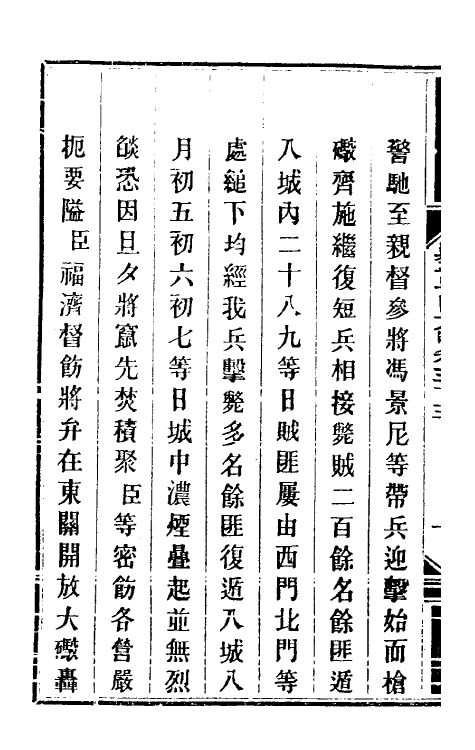 警馳至親督參將馮景尼等帶兵迎擊始而槍
礮齊施繼復短兵相接斃賊二百餘名餘匪遁
入城內二十八九等日賊匪屢由西門北門等
處縋下均經我兵擊斃多名餘匪復遁入城八
月初五初六初七等日城中濃煙疊起並無烈
燄恐因旦夕將竄先焚積聚臣等密飭各營嚴
扼要隘臣福濟督飭將弁在東關開放大礮轟